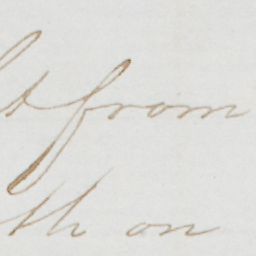 from
th on